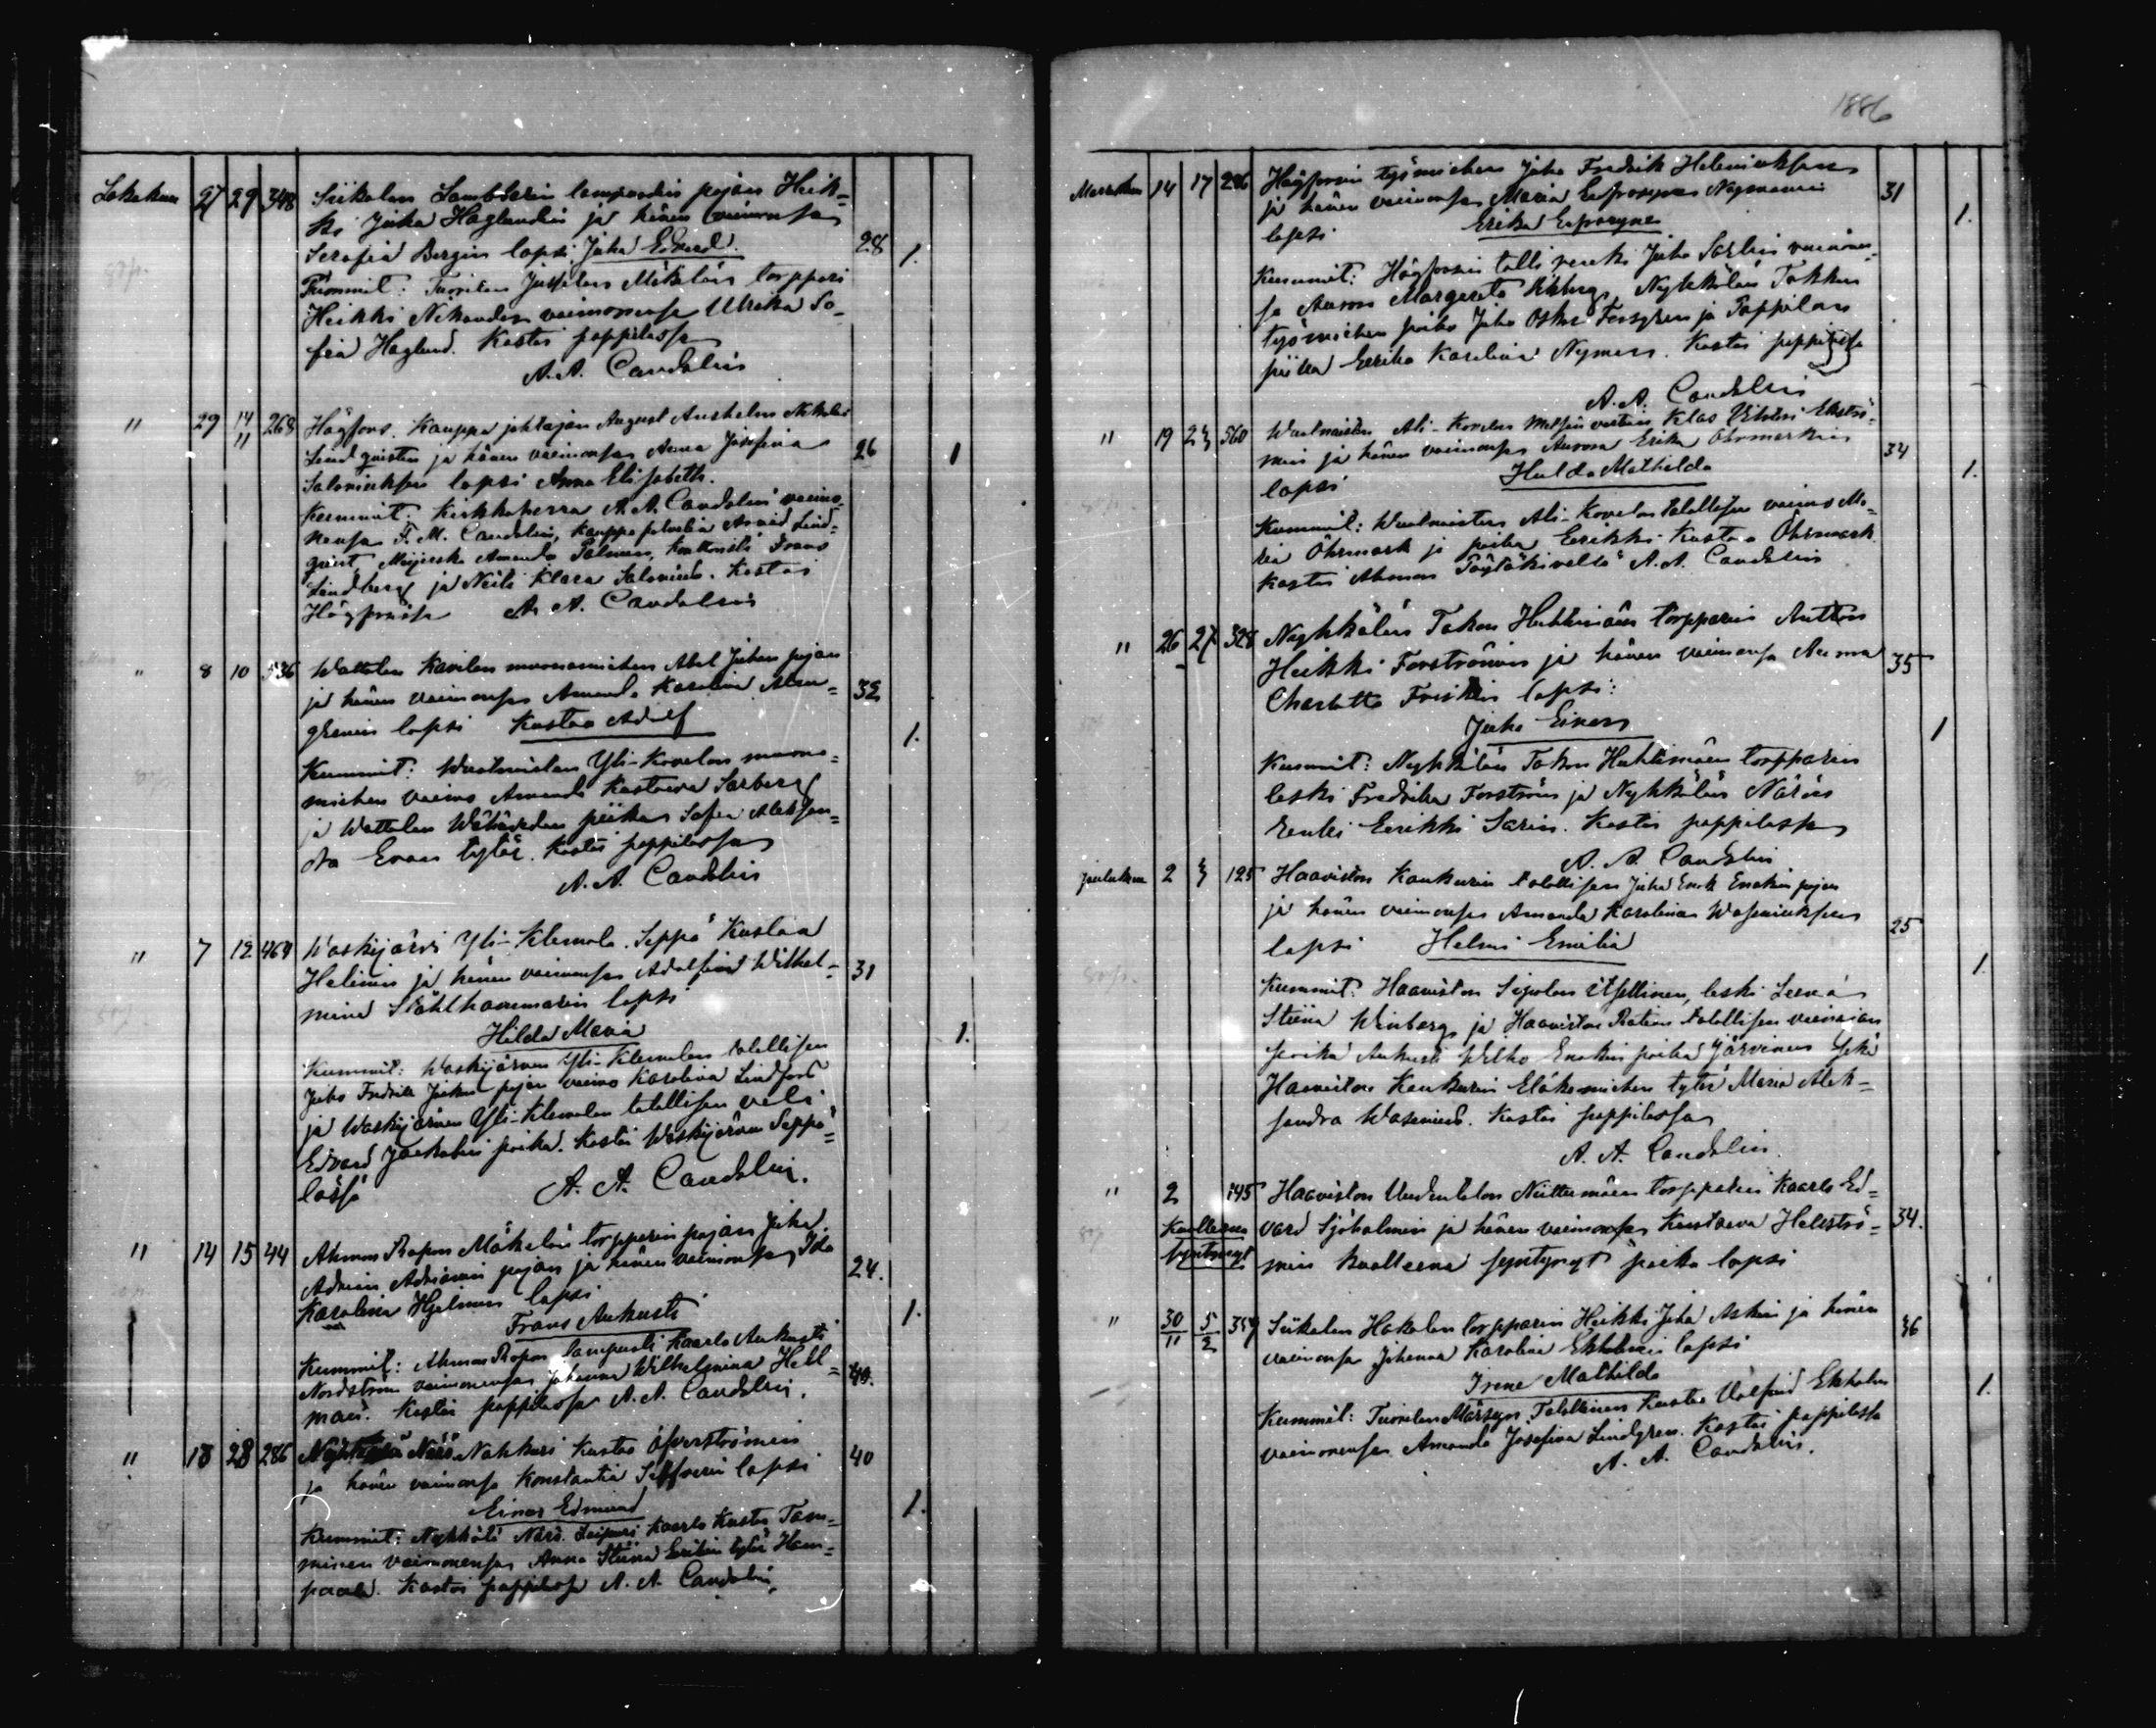 Lokakuu 27 29 348 Siikalan Lambolarin lampuodin pojan Heik=
ki Juha Haglundin ja hänen vaimonsa
Serafia Bergin lapsi Juha Edvard. 28 1.
Kummit: Tuorilan Jussilan Mäkelän torppari
Heikki Nikander vaimonensa Ulrika So=
fia Haglund. Kastoi pappilassa
A. A. Candolin
" 29 14/11 268 Högfors. Kauppajohtajan August Anshelm Nikolai
Lindqvistin ja hänen vaimonsa Anna Josefina 26 1
Saloniuksen lapsi Anna Elisabeth.
Kummit: Kirkkoherra A. A. Candolin vaimo=
nensa F. M. Candolin, Kauppapalvelia Arvid Lind=
qvist Amanda Palmen, Konttoristi Frans
Lindberg ja Neiti Klara Salonius. Kastoi
Högforsissa A. A. Candolin
" 8 10 536 Wattolan Kavilan muonamiehen Abel Juhan pojan
ja hänen vaimonsa Amanda Karolina Alm= 32
grenin lapsi Kustaa Adolf 1.
Kummit: Yli-Kovelan muona=
miehen vaimo Amanda Kustaava Sarberg
ja Wattolan piika Sofia Aleksan=
dra Evan tytär. Kastoi pappilassa
A. A. Candolin
" 7 12 464 Waskijärvi Yli-Klemola. Seppä Kustaa
Helinin ja hänen vaimonsa Adolfina Wilhel= 31
mina Stählhammarin lapsi
Hilda Maria 1.
Kummit: Waskijärven Yli-Klemolan talollisen
Juho Fredrik Juhan pojan vaimo Karolina Lindfors
ja Waskijärven Yli-Klemolan talollisen veli
Edvard Jaakobin poika. Kastoi Waskijärven Seppä=
lässä A. A. Candolin.
" 14 15 44 Ahmoo Ropon Mäkelän torpparin pojan Juha
Adrian Adrianin pojan ja hänen vaimonsa Ida 24.
Karolina Hjelmin lapsi
Frans Aukusti 1.
Kummit: Ahmoo Ropon lampuoti Kaarlo Aukusti
Nordström vaimonensa Johanna Wilhelmina Hell= 40.
man. Kastoi pappilassa A. A. Candolin.
" 18 28 286 Nyhkälä Närö Nahkuri Kustaa Öfverströmin
ja hänen vaimonsa Konstantia Silfverin lapsi 40
Einar Edmund 1.
Kummit: Nyhkälä Närö. Kaarlo Kustaa Tam=
minen vaimonensa Anna Stiina Eerikin tytär Ham=
paala. Kastoi pappilassa A. A. Candolin.
1886
Marraskuu 14 17 286 Högforsin työmiehen Juho Fredrik Heleniuksen
ja hänen vaimonsa Maria Eufrosyne Nymanin 31
lapsi Erika Eufrosyne 1.
Kummit: Högforsin talli renki Juho Sarlin vaimonen=
sa Aurora Margareta Köberg, Nyhkälän Takkun
työmiehen poika Juho Oskar Forsgren ja Pappilan
piika Eerika Karolina Nyman. Kastoi pappilassa
A. A. Candolin
" 19 23 560 Ali-Kovelan Klas Viktori Ekströ=
min ja hänen vaimonsa Aurora Erika Öhrmarkin 34
lapsi Hulda Mathilda 1.
Kummit: Ali-Kovelan talollisen vaimo Ma=
ria Öhrmark ja poika Eerikki Kustaa Öhrmark
Kastoi Ahmoo A. A. Candolin
" 26 27 328 Nyhkälän Takun Huhtimäen torpparin Anttoni
Heikki Forströmin ja hänen vaimonsa Aurora 35
Charlotta Friskin lapsi:
Juho Einar 1
Kummit: Nyhkälän Takun Huhtimäen torpparin
leski Fredrika Forström ja Nyhkälän Närön
renki Eerikki Sarin. Kastoi pappilassa
A. A. Candolin
Joulukuu 2 3 125 Haaviston Kankurin talollisen Juha Enok Enokin pojan
ja hänen vaimonsa Amanda Karolina Waseniuksen 25
lapsi Helmi Emilia 1.
Kummit: Haaviston Sipolan itsellinen, leski Leena
Stiina Winberg ja Haaviston Ratian talollisen vaimon
poika Aukusti Wilho Enokin poika Järvinen sekä
Haaviston Kankurin Eläkemiehen tytär Maria Alek=
sandra Wasenius. Kastoi pappilassa
A. A. Candolin.
" 2 145 Haaviston Uudentalon Niittumäen torpparin Kaarlo Ed=
Kuolleena vard Sjöholmin ja hänen vaimonsa Kustaava Hellströ= 34.
syntynyt min kuolleena syntynyt poika lapsi
" 30/11 5/2 354 Siikalan Hakalan torpparin Heikki Juha Askin ja hänen
vaimonsa Johanna Karolina Ekholmin lapsi 36
Irene Mathilda 1.
Kummit: Tuorilan Talollinen Kustaa Valfrid Ekholm
vaimonensa Amanda Josefina Lindgren. Kastoi pappilassa
A. A. Candolin.